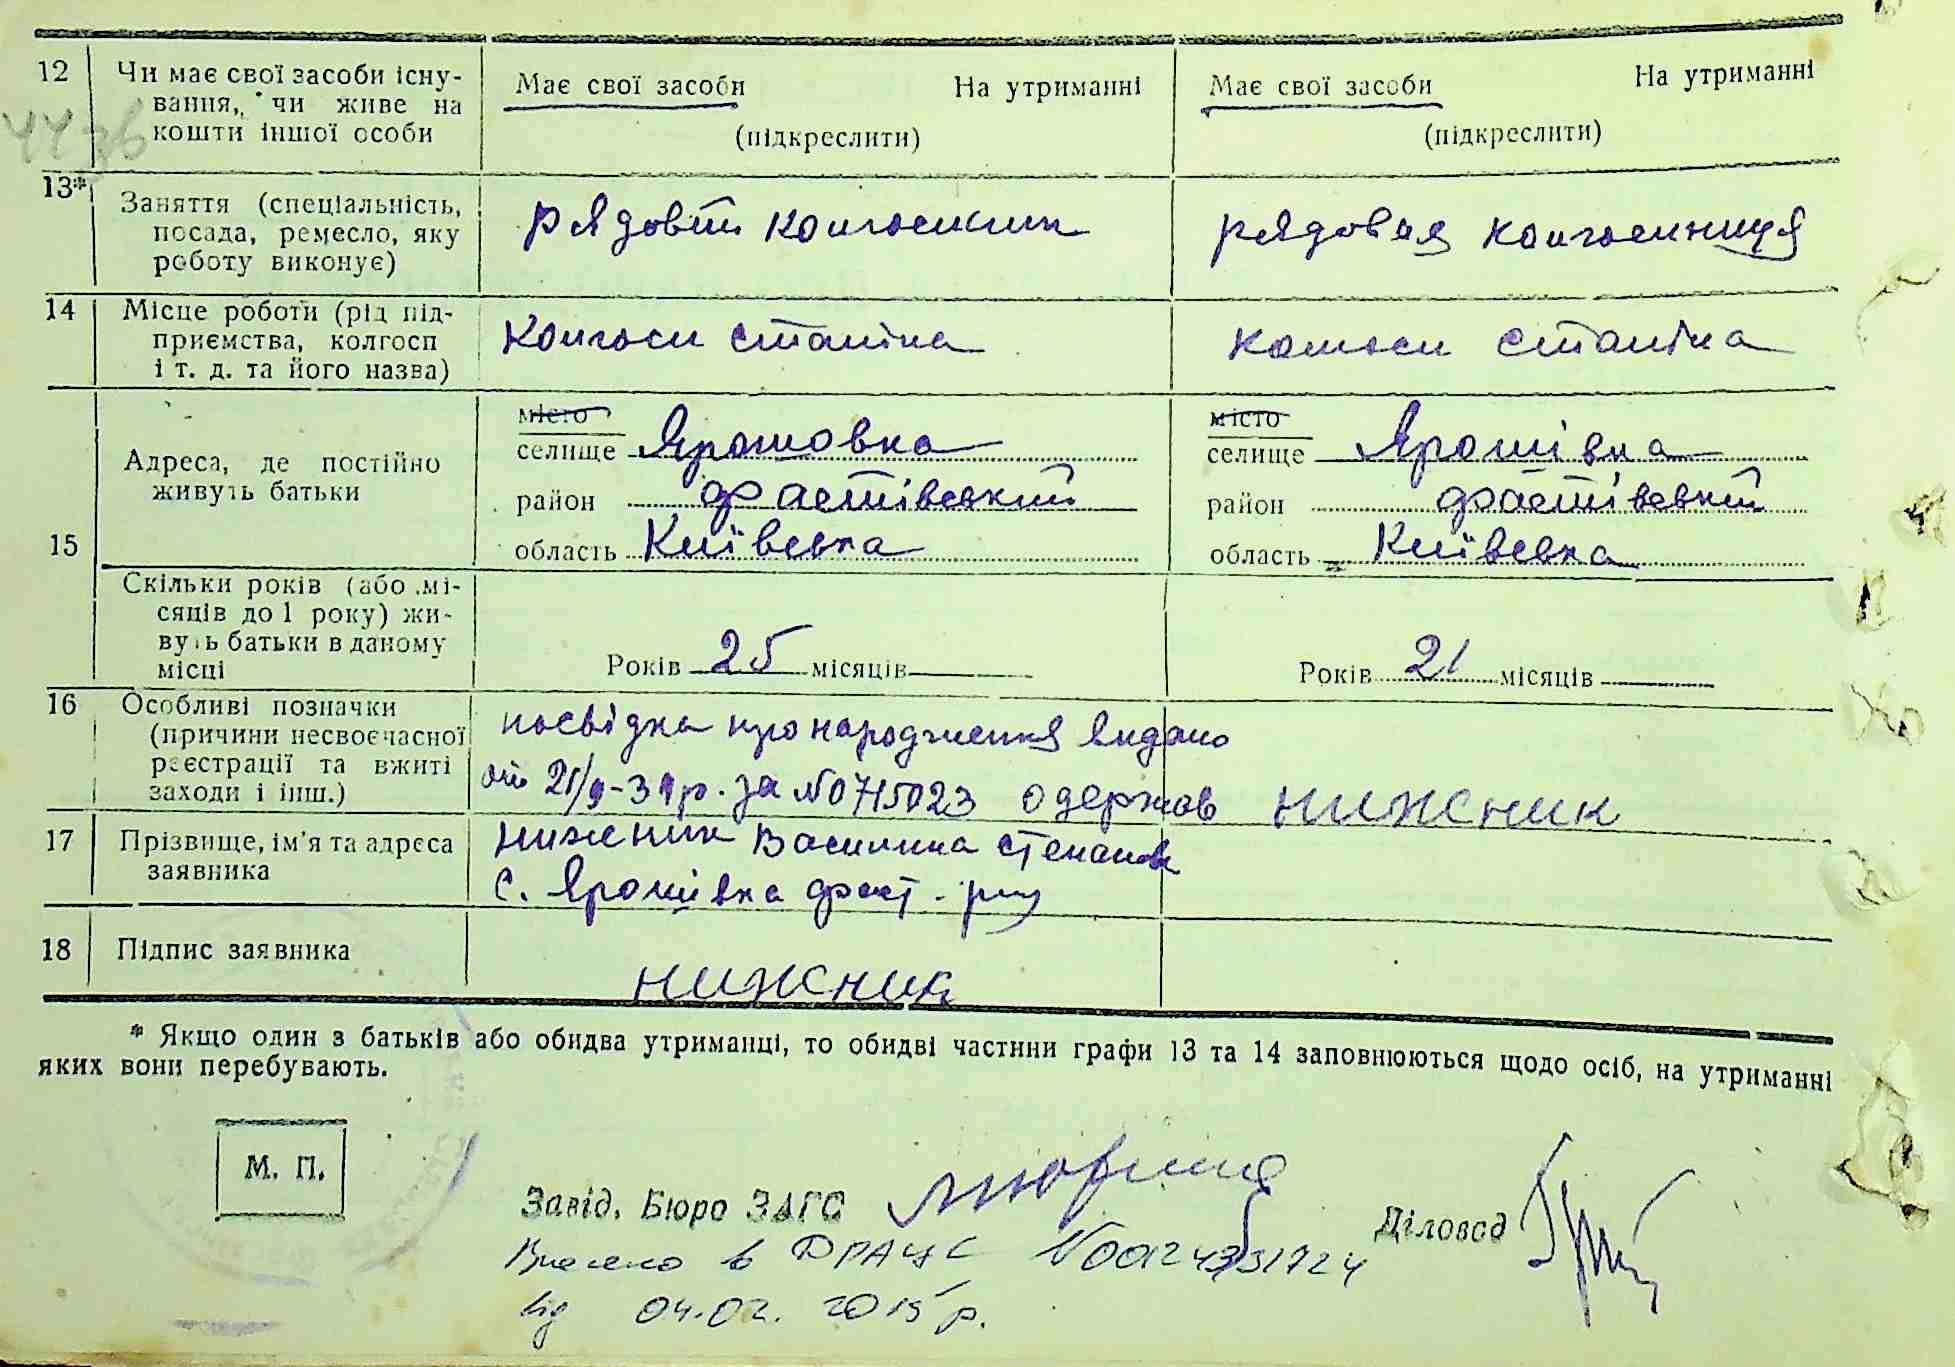 12 Чи має свої засоби існу-
вання, чи живе на
кошти іншої особи
Має свої засоби На утриманні
(підкреслити)
Має свої засоби На утриманні
(підкреслити)
13* Заняття (спеціальність,
посада, ремесло, яку
роботу виконує)
рядовий колгоспник
рядовая колгоспниця
14 Місце роботи (рід під-
приємства, колгосп
і т. д. та його назва)
Колгосп Сталіна
колгосп Сталіна
15 Адреса, де постійно
живуть батьки
місто
селище Ярошовка
район Фастівський
область Київська
місто
селище Ярошівка
район Фастівський
область Київська
Скільки років (або мі-
сяців до 1 року) жи-
вуть батьки в даному
місці
Років 25 місяців
Років 21 місяців
16 Особливі позначки
(причини несвоєчасної
реєстрації та вжиті
заходи і інш.)
посвідка про народження видано
від 21/9-39р. за №0715023 одержав нижсник
17 Прізвище, ім'я та адреса
заявника
Нижсник Василина Степанов
с. Ярошівка фаст. р-ну
18 Підпис заявника
нижсник
* Якщо один з батьків або обидва утриманці, то обидві частини графи 13 та 14 заповнюються щодо осіб, на утриманні
яких вони перебувають.
М. П.
Завід. Бюро ЗАГС
Діловод
Внесено в ДРАЦС №00124331724
від 04.02.2015 р.